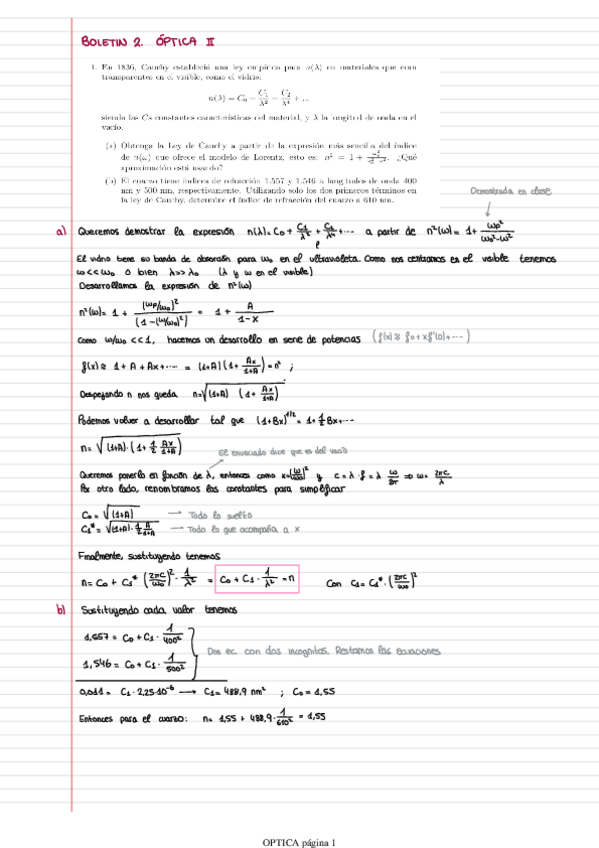 BOLETIN 2. ÓPTICA II
1. En 1836, Cauchy estableció una ley empírica para n(λ) en materiales que eran
transparentes en el visible, como el vidrio:
n(λ) = C₀ + C₁/λ² + C₂/λ⁴ + ...
siendo las Cs constantes características del material, y λ la longitud de onda en el
vacío.
(a) Obtenga la Ley de Cauchy a partir de la expresión más sencilla del índice
de n(ω) que ofrece el modelo de Lorentz, esto es: n² = 1 + . ¿Qué
aproximación está usando?
(b) El cuarzo tiene índices de refracción 1.557 y 1.546 a longitudes de onda 400
nm y 500 nm, respectivamente. Utilizando solo los dos primeros términos en
la ley de Cauchy, determine el índice de refracción del cuarzo a 610 nm.
Demostrada en clase
a) Queremos demostrar la expresión n(λ)= C₀ + C₁/λ² + C₂/λ⁴ + ... a partir de n²(ω)= 1+ ωp²/(ω₀²-ω²)
El vidrio tiene su banda de absorción para ω₀ en el ultravioleta. Como nos centramos en el visible tenemos
ω<<ω₀ o bien λ>>λ₀ (λ y ω en el visible)
Desarrollamos la expresión de n²(ω)
n²(ω)= 1 + (ωp/ω₀)²/(1-(ω/ω₀)²) = 1 + A/(1-x)
Como ω/ω₀ <<1, hacemos un desarrollo en serie de potencias (f(x) ≈ f₀+xf'(0)+...)
f(x) ≈ 1 + A + Ax+.... = (1+A)(1+ Ax/(1+A)) = n² ;
Despejando n nos queda n=√((1+A) (1+ Ax/(1+A)))
Podemos volver a desarrollar tal que (1+Bx)^1/2 = 1+ 1/2 Bx+...
n= √(1+A)·(1+ 1/2 Ax/(1+A))
El enunciado dice que es del vacío
Queremos ponerlo en función de λ, entonces como x=(ω/ω₀)² y c = λ·f = λ ω/2π ⇒ ω= 2πc/λ
Por otro lado, renombramos las constantes para simplificar
C₀ = √(1+A) → Todo lo suelto
C₁* = √(1+A)· 1/2 A/(1+A) → Todo lo que acompaña a x
Finalmente, sustituyendo tenemos
n= C₀ + C₁* (2πc/ω₀)² · 1/λ² = C₀ + C₁ · 1/λ² = n Con C₁= C₁*·(2πc/ω₀)²
b) Sustituyendo cada valor tenemos
1,557 = C₀ + C₁· 1/400²
Dos ec. con dos incógnitas. Restamos las ecuaciones
1,546 = C₀ + C₁· 1/500²
0,011 = C₁·2,25·10⁻⁶ → C₁= 488,9 nm² ; C₀ = 1,55
Entonces para el cuarzo: n= 1,55 + 488,9 · 1/610² = 1,55
OPTICA página 1